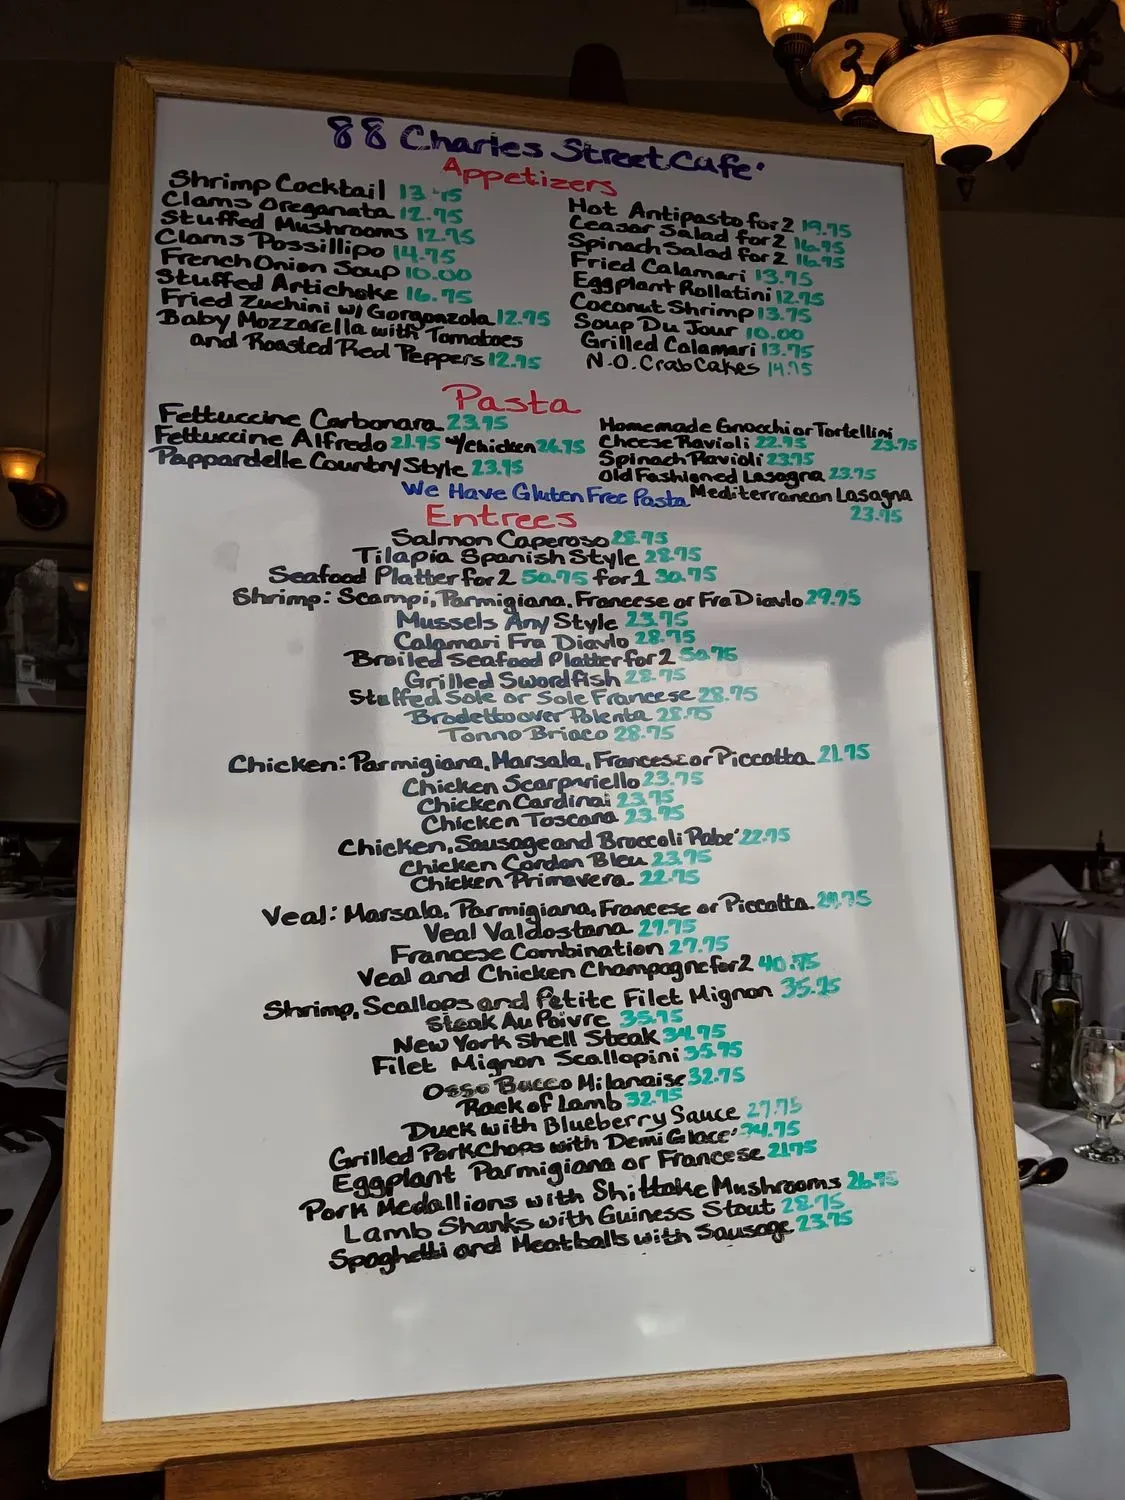 88 Charles Street Cafe'
Appetizers
Shrimp Cocktail 13.75
Clams Oreganata 12.75
Stuffed Mushrooms 12.75
Clams Possillipo 14.75
French Onion Soup 10.00
Stuffed Artichoke 16.75
Fried Zuchini w/ Gorgonzola 12.75
Baby Mozzarella with Tomatoes
and Roasted Red Peppers 12.75
Hot Antipasto for 2 19.75
Ceasar Salad for 2 16.75
Spinach Salad for 2 16.75
Fried Calamari 13.75
Eggplant Rollatini 12.75
Coconut Shrimp 13.75
Soup Du Jour 10.00
Grilled Calamari 13.75
N.O. Crab Cakes 14.75
Pasta
Fettuccine Carbonara 23.75
Fettuccine Alfredo 21.75 w/Chicken 26.75
Pappardelle Country Style 23.75
Homemade Gnocchi or Tortellini
23.75
Cheese Ravioli 22.75
Spinach Ravioli 23.75
Old Fashioned Lasagna 23.75
Mediterranean Lasagna
23.75
We Have Gluten Free Pasta
Entrees
Salmon Caperoso 28.75
Tilapia Spanish Style 28.75
Seafood Platter for 2 50.75 for 1 30.75
Shrimp: Scampi, Parmigiana, Francese or Fra Diavlo 29.75
Mussels Any Style 23.75
Calamari Fra Diavlo 28.75
Broiled Seafood Platter for 2 50.75
Grilled Swordfish 28.75
Stuffed Sole or Sole Francese 28.75
Brodetto over Polenta 28.75
Tonno Briaco 28.75
Chicken: Parmigiana, Marsala, Francese or Piccatta 21.75
Chicken Scarpariello 23.75
Chicken Cardinai 23.75
Chicken Toscana 23.75
Chicken, Sausage and Broccoli Rabe' 22.75
Chicken Cordon Bleu 23.75
Chicken Primavera 22.75
Veal: Marsala, Parmigiana, Francese or Piccatta
Veal Valdostana 27.75
Francese Combination 27.75
Veal and Chicken Champagne for 2 40.75
Shrimp, Scallops and Petite Filet Mignon 35.75
Steak Au Poivre 35.75
New York Shell Steak 34.75
Filet Mignon Scallopini 35.75
Osso Bucco Milanaise 32.75
Rack of Lamb 32.75
Duck with Blueberry Sauce 27.75
Grilled Pork Chops with Demi Glace' 24.75
Eggplant Parmigiana or Francese 21.75
Pork Medallions with Shittake Mushrooms 26.75
Lamb Shanks with Guiness Stout 28.75
Spaghetti and Meatballs with Sausage 23.75